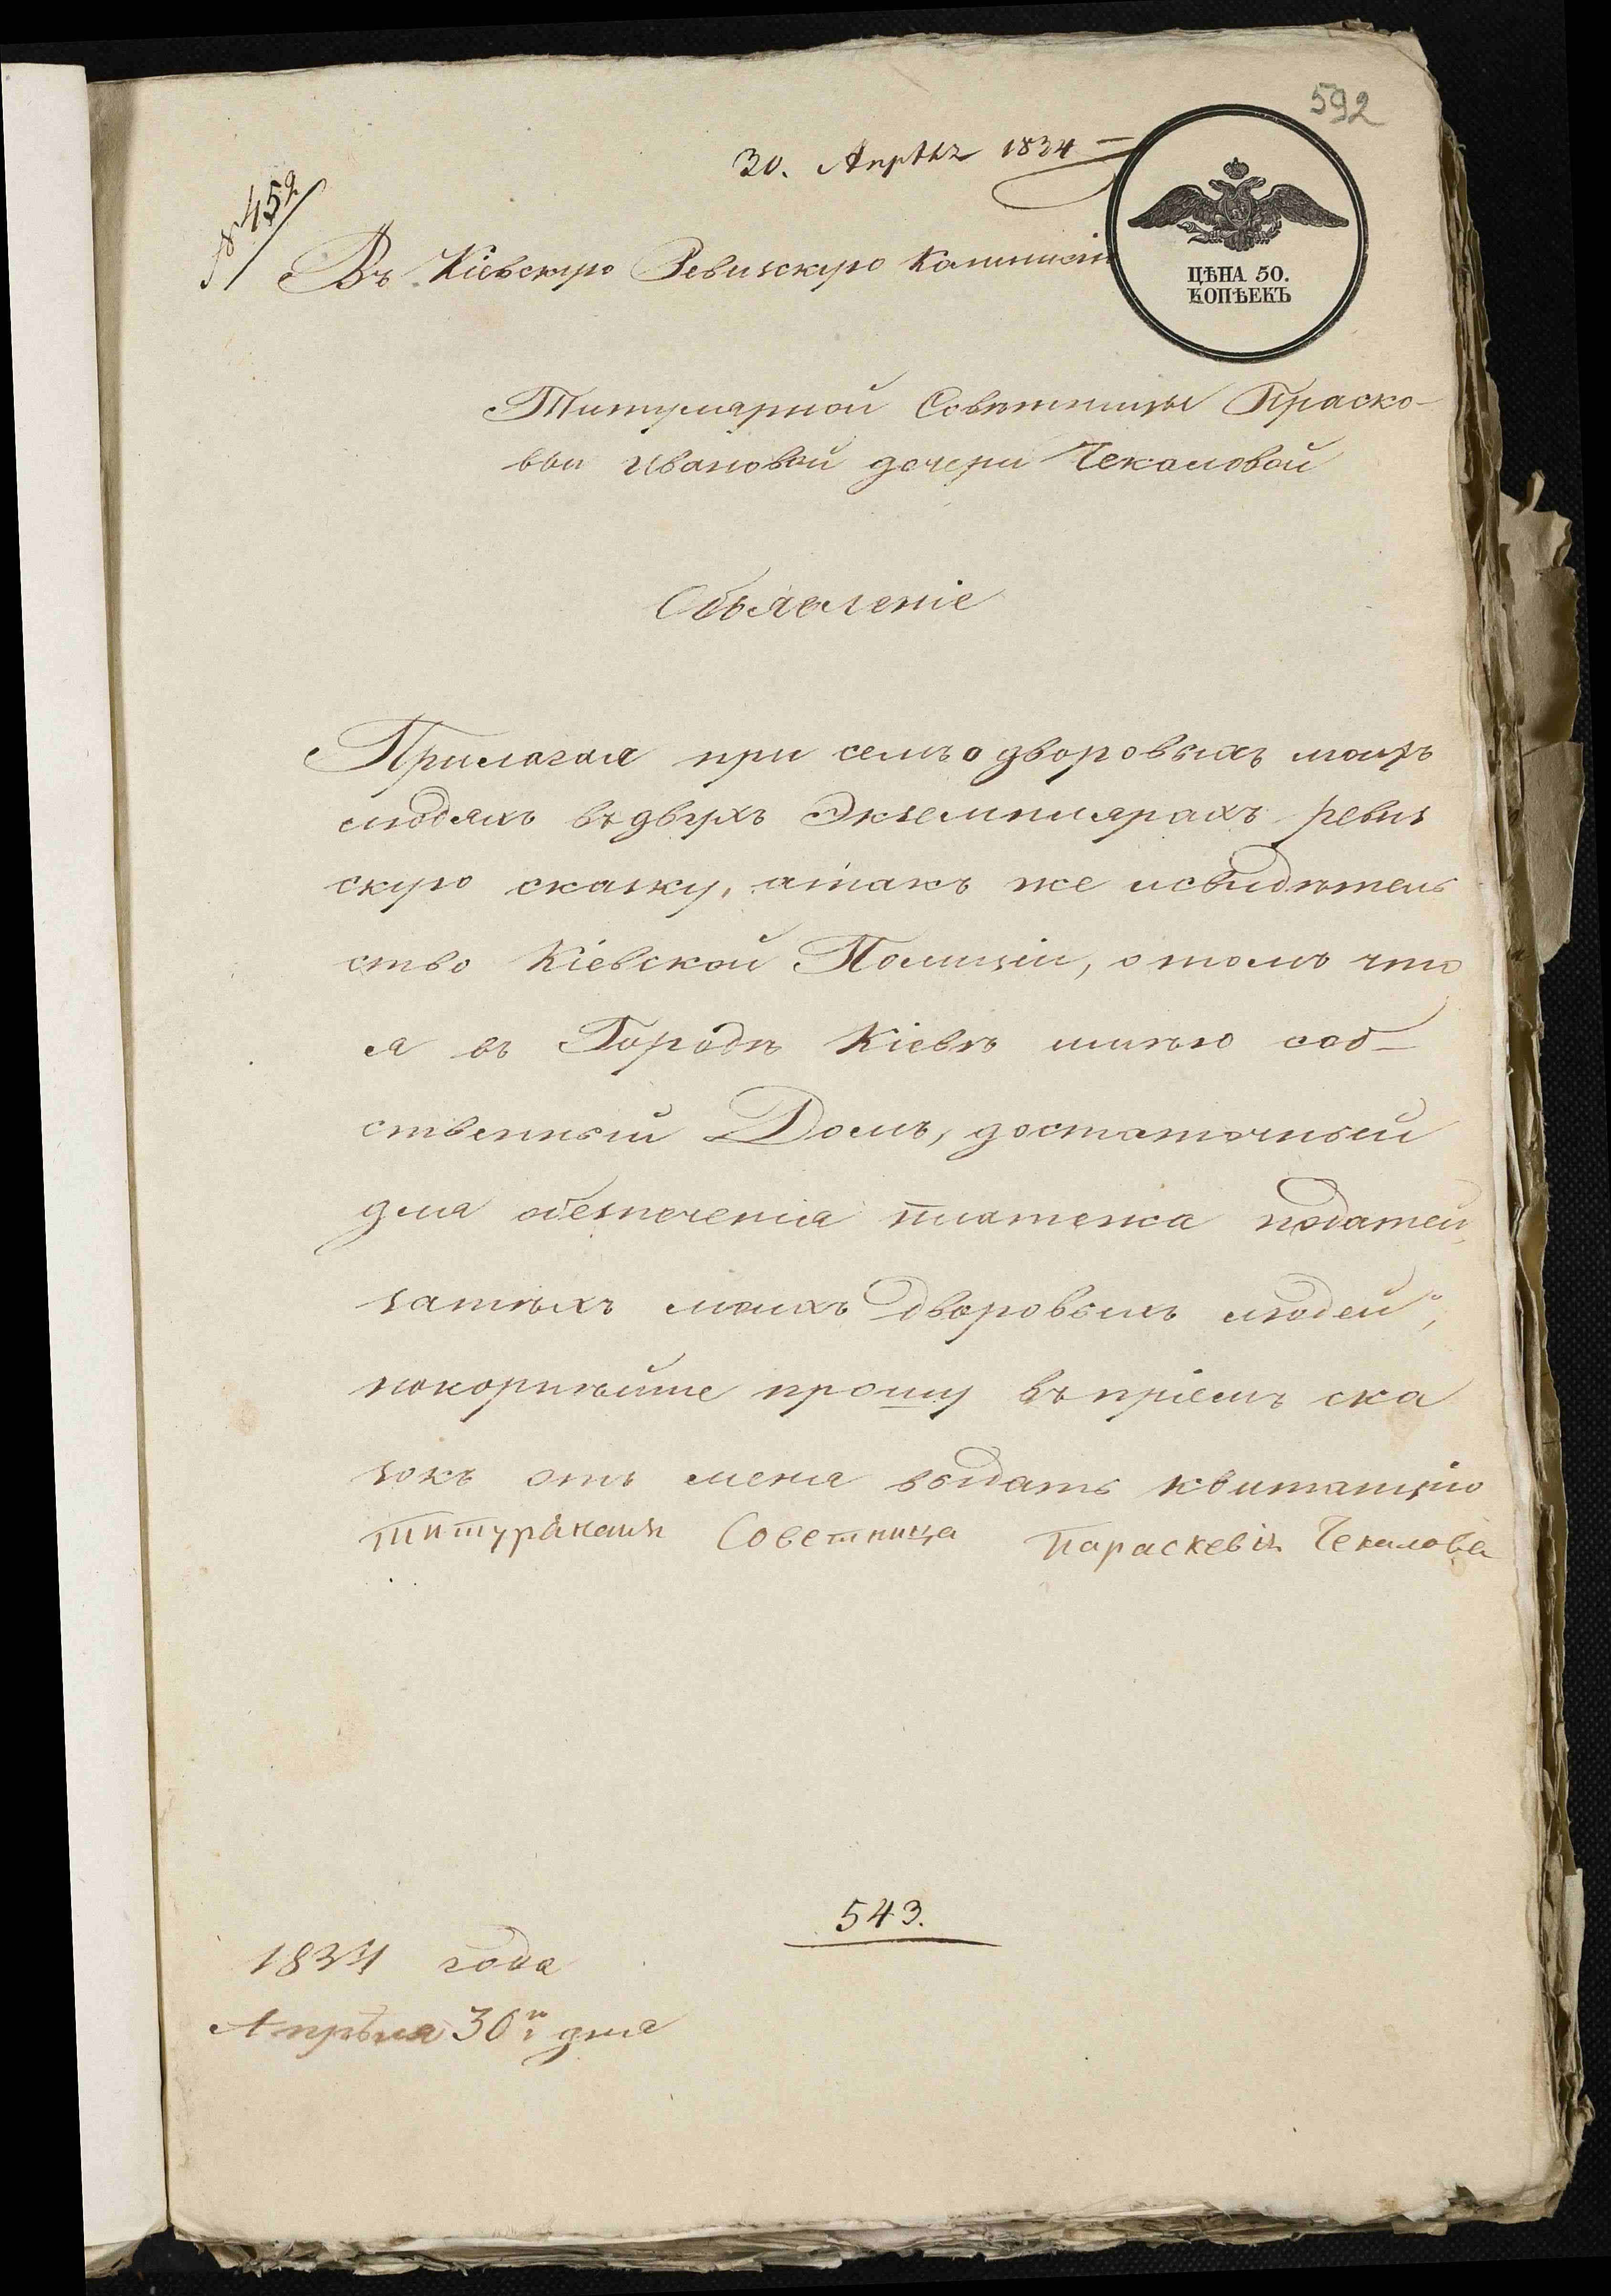 592
30. Апрѣлъ 1834
№ 452
Въ Кіевскую Ревизскую Коммисію
ЦѢНА 50.
КОПѢЕКЪ
Титулярной Совѣтницы Праско-
вьи Ивановой дочери Чекаловой
Объявленіе
Прилагая при семъ о дворовыхъ моихъ
людяхъ въ двухъ Экземплярахъ ревиз
скую сказку, атакъ же исвидѣтель
ство Кіевской Полиціи, отомъ что
я въ Городѣ Кіевѣ имѣю соб-
ственный Домъ, достаточный
для обезпеченія платежа податей,
затѣхъ моихъ дворовыхъ людей,
покорнѣйше прошу въпріемъ ска
зокъ отъ меня выдать квитанцію
Советница Параскевія Чекалова
543.
1834 года
Апрѣля 30го дня